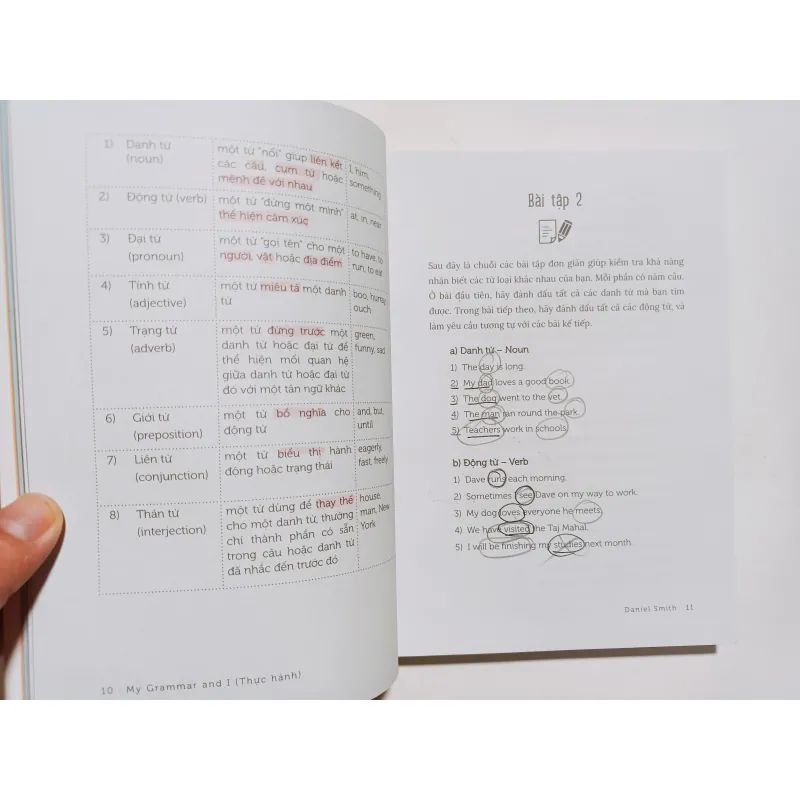 1) Danh từ một từ "nối" giúp liên kết I, him,
(noun) các câu, cụm từ hoặc something
mệnh đề với nhau
2) Động từ (verb) một từ "đứng một mình" at, in, near
thể hiện cảm xúc
3) Đại từ một từ "gọi tên" cho một to have, to
(pronoun) người, vật hoặc địa điểm run, to eat
4) Tính từ một từ miêu tả một danh boo, hurray,
(adjective) từ ouch
5) Trạng từ một từ đứng trước một green,
(adverb) danh từ hoặc đại từ để funny, sad
thể hiện mối quan hệ
giữa danh từ hoặc đại từ
đó với một tân ngữ khác
6) Giới từ một từ bổ nghĩa cho and, but,
(preposition) động từ until
7) Liên từ một từ biểu thị hành eagerly,
(conjunction) động hoặc trạng thái fast, freely
8) Thán từ một từ dùng để thay thế house,
(interjection) cho một danh từ, thường man, New
chỉ thành phần có sẵn York
trong câu hoặc danh từ
đã nhắc đến trước đó
10 My Grammar and I (Thực hành)
Bài tập 2
Sau đây là chuỗi các bài tập đơn giản giúp kiểm tra khả năng
nhận biết các từ loại khác nhau của bạn. Mỗi phần có năm câu.
Ở bài đầu tiên, hãy đánh dấu tất cả các danh từ mà bạn tìm
được. Trong bài tiếp theo, hãy đánh dấu tất cả các động từ, và
làm yêu cầu tương tự với các bài kế tiếp.
a) Danh từ – Noun
1) The day is long.
2) My dad loves a good book.
3) The dog went to the vet.
4) The man ran round the park.
5) Teachers work in schools.
b) Động từ – Verb
1) Dave runs each morning.
2) Sometimes I see Dave on my way to work.
3) My dog loves everyone he meets.
4) We have visited the Taj Mahal.
5) I will be finishing my studies next month.
Daniel Smith 11